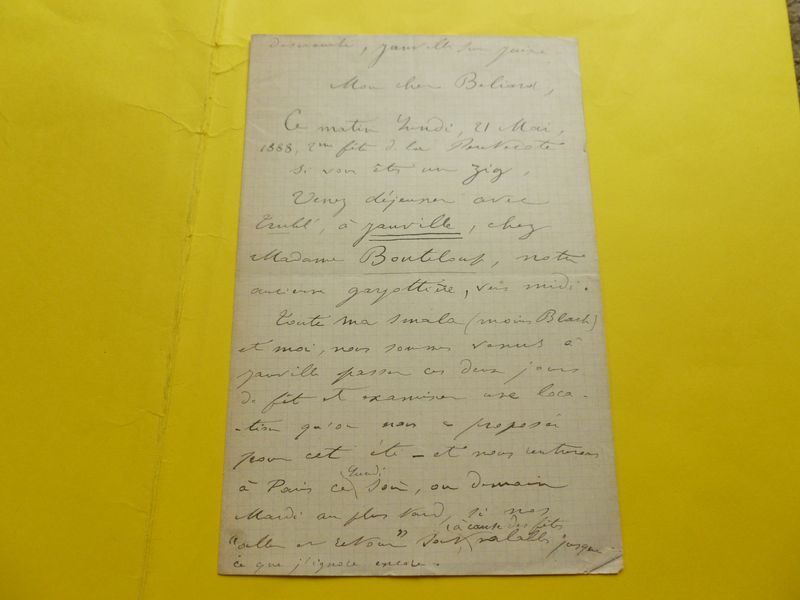 dimanche, Janville sur Juine
Mon cher Beliard,
Ce matin Lundi, 21 Mai,
1888, 2me fête de la Pentecôte
si vous êtes un zig,
Venez déjeuner avec
Trubl', à Janville, chez
Madame Bouteloup, notre
ancienne gargottière, vers midi.
Toute ma smala (moins Black)
et moi, nous sommes venus à
Janville passer ces deux jours
de fête et examiner une loca-
-tion qu'on nous a proposée
pour cet été - et nous rentrerons
à Paris ce Lundi soir, ou demain
Mardi au plus tard, si nos
"aller et retour" sont à cause des fêtes valables jusque
ce que j'ignore encore.